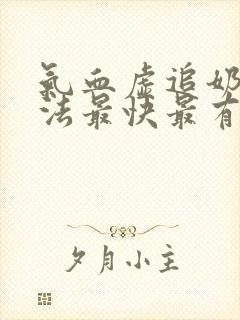 氣血虛追奶
法最快最有
夕月小主